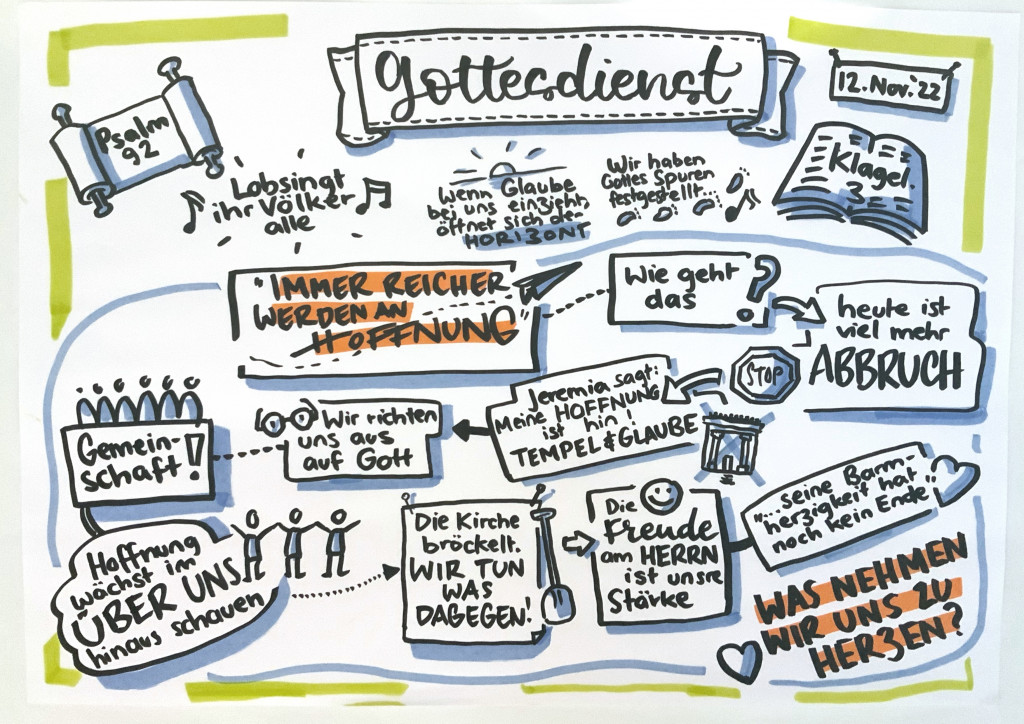 Gottesdienst
12. Nov. '22
Psalm
92
Lobsingt
ihr Völker
alle
Wenn Glaube
bei uns einzieht,
öffnet sich der
HORIZONT
Wir haben
Gottes Spuren
festgestellt...
Klagel.
3
"IMMER REICHER
WERDEN AN
HOFFNUNG"
Wie geht
das ?
heute ist
viel mehr
ABBRUCH
STOP
Jeremia sagt:
Meine HOFFNUNG
ist hin!
TEMPEL & GLAUBE
Wir richten
uns aus
auf Gott
Gemein-
schaft!
Hoffnung
wächst im
ÜBER UNS
hinaus schauen
Die Kirche
bröckelt.
WIR TUN
WAS
DAGEGEN!
Die
Freude
am HERRN
ist unsre
Stärke
"...seine Barm-
herzigkeit hat
noch kein Ende"
WAS NEHMEN
WIR UNS ZU
HERZEN?